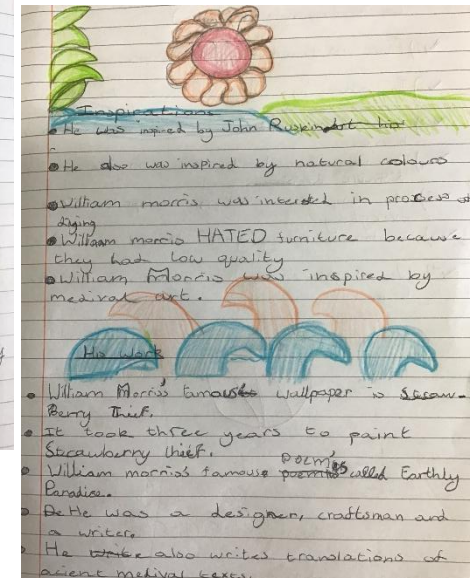 Inspirations
He was inspired by John Ruskin
He also was inspired by natural colours
William morris was intrested in process of
dying
William morris HATED furniture because
they had low quality
William Morris was inspired by
medival art.
His work
William Morris' famous wallpaper is Straw-
Berry Thief.
It took three years to paint
Strawberry thief.
William morris's famous poem is called Earthly
Paradise.
He was a designer, craftsman and
a writer.
He also writes translations of
acient medival texts.